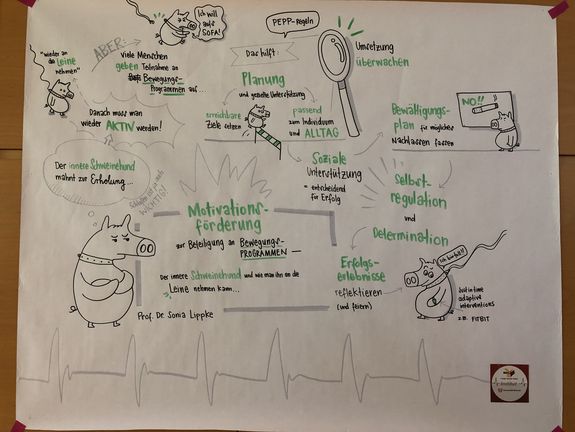 Ich will
aufs
SOFA!
"wieder an
die Leine
nehmen"
ABER:
Viele Menschen
geben Teilnahme an
Bewegungs-
Programmen auf...
Danach muss man
wieder AKTIV werden!
Der innere Schweinehund
mahnt zur Erholung...
Schlafen ist auch
WICHTIG!
PEPP-Regeln
Das hilft:
Planung
und gezielte Unterstützung
erreichbare
Ziele setzen
passend
zum Individuum
und ALLTAG
Umsetzung
überwachen
Soziale
Unterstützung
= entscheidend
für Erfolg
Bewältigungs-
plan für mögliches
Nachlassen fassen
NO!!
Selbst-
regulation
und
Determination
Erfolgs-
erlebnisse
reflektieren
(und feiern)
Ich bin fit!!
Just in time
adaptive
interventions
z.B. FITBIT
Motivations-
förderung
zur Beteiligung an Bewegungs-
PROGRAMMEN
Der innere Schweinehund und wie man ihn an die
Leine nehmen kann...
Prof. Dr. Sonia Lippke